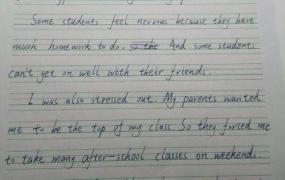 Some students feel nervous because they have
much homework to do. so the And some students
can't get on well with their friends.
I was also stressed out. My parents wanted
me to be the top of my class. So they forsed me
to take many after-school classes on weekends.